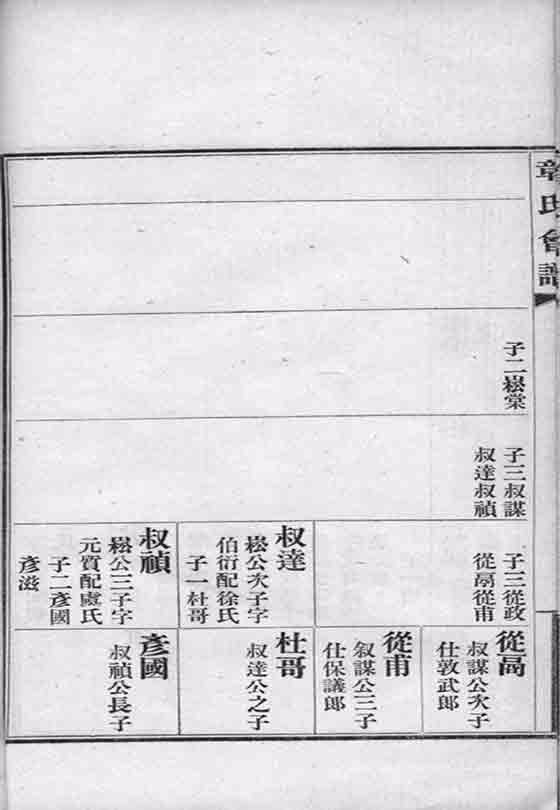 章氏會譜
子二崧棠
子三叔謀
叔達叔禎
子三從政
從卨從甫
叔達
崧公次子字
伯衍配徐氏
子一杜哥
叔禎
崧公三子字
元質配盧氏
子二彥國
彥滋
從卨
叔謀公次子
仕敦武郎
從甫
叙謀公三子
仕保議郎
杜哥
叔達公之子
彥國
叔禎公長子